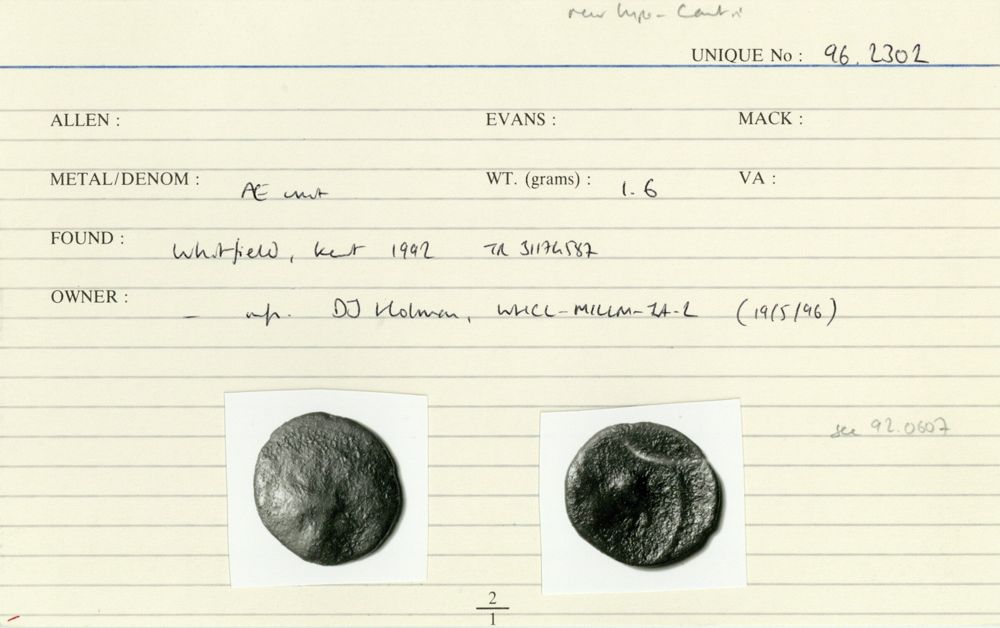 new type - Cantii
UNIQUE No : 96.2302
ALLEN : EVANS : MACK :
METAL/DENOM : Æ unit WT. (grams) : 1.6 VA :
FOUND : Whitfield, Kent 1992 TR 31174587
OWNER : - inf. DJ Holman, WHCL-MILLM-IA-2 (19/5/96)
see 92.0607
2
1